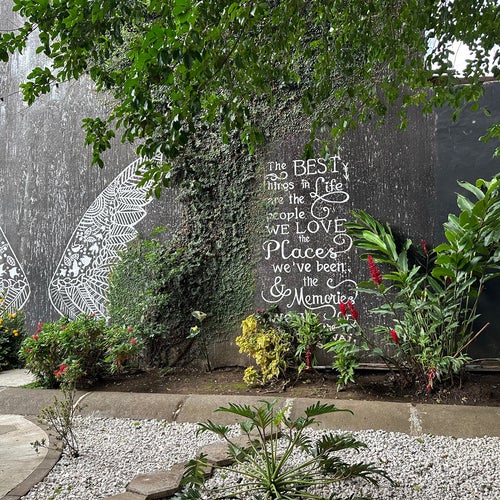 The BEST
things in Life
are the
people &
WE LOVE
the
Places
we've been
the
& Memories
we
the